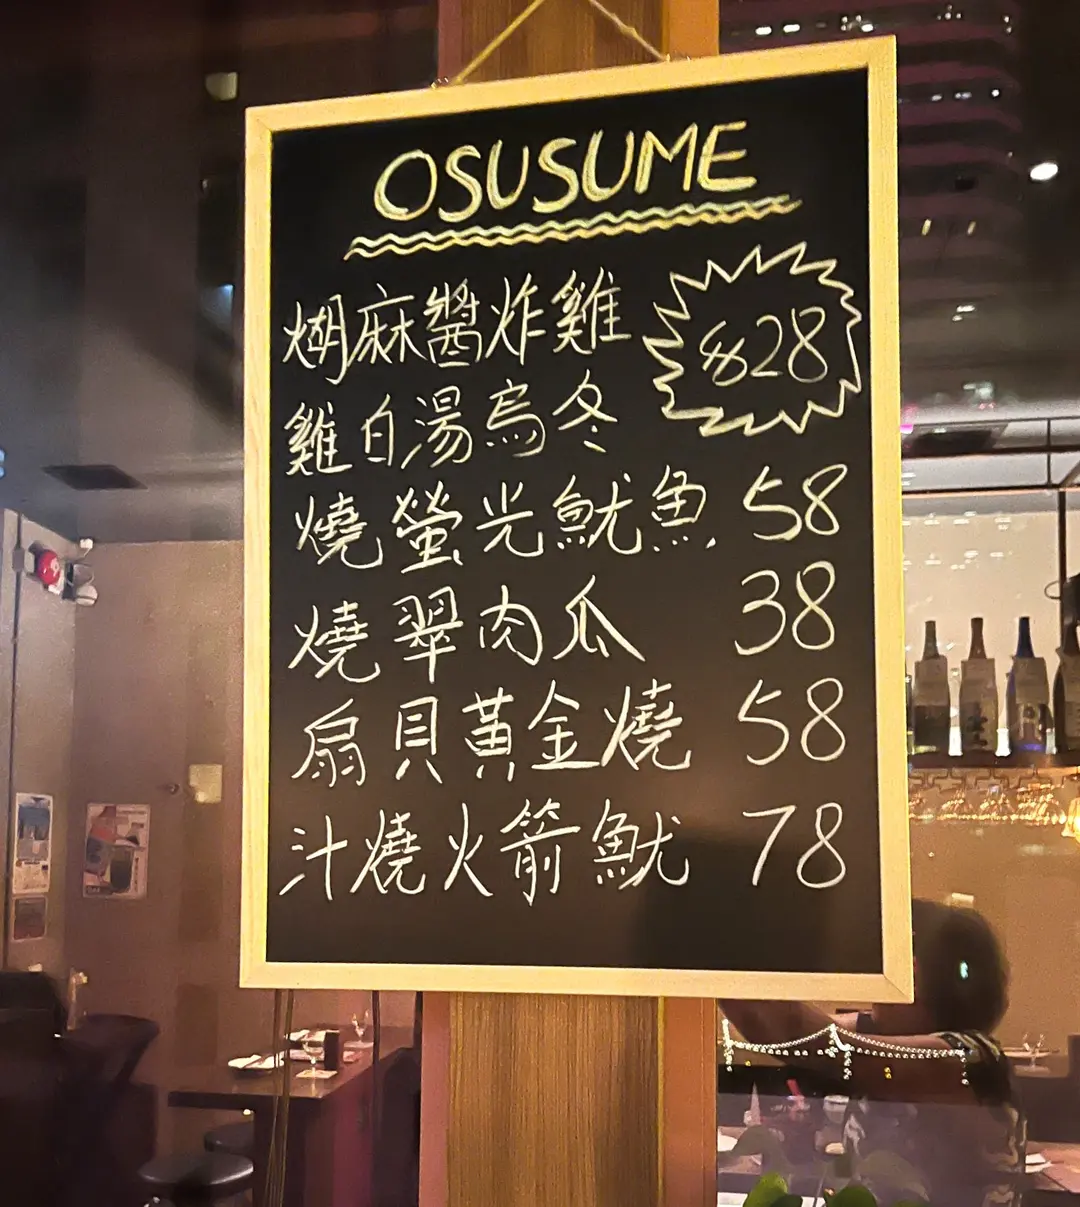 OSUSUME
煳麻醬炸雞
$28
雞白湯烏冬
燒螢光魷魚 58
燒翠肉瓜 38
扇貝黃金燒 58
汁燒火箭魷 78